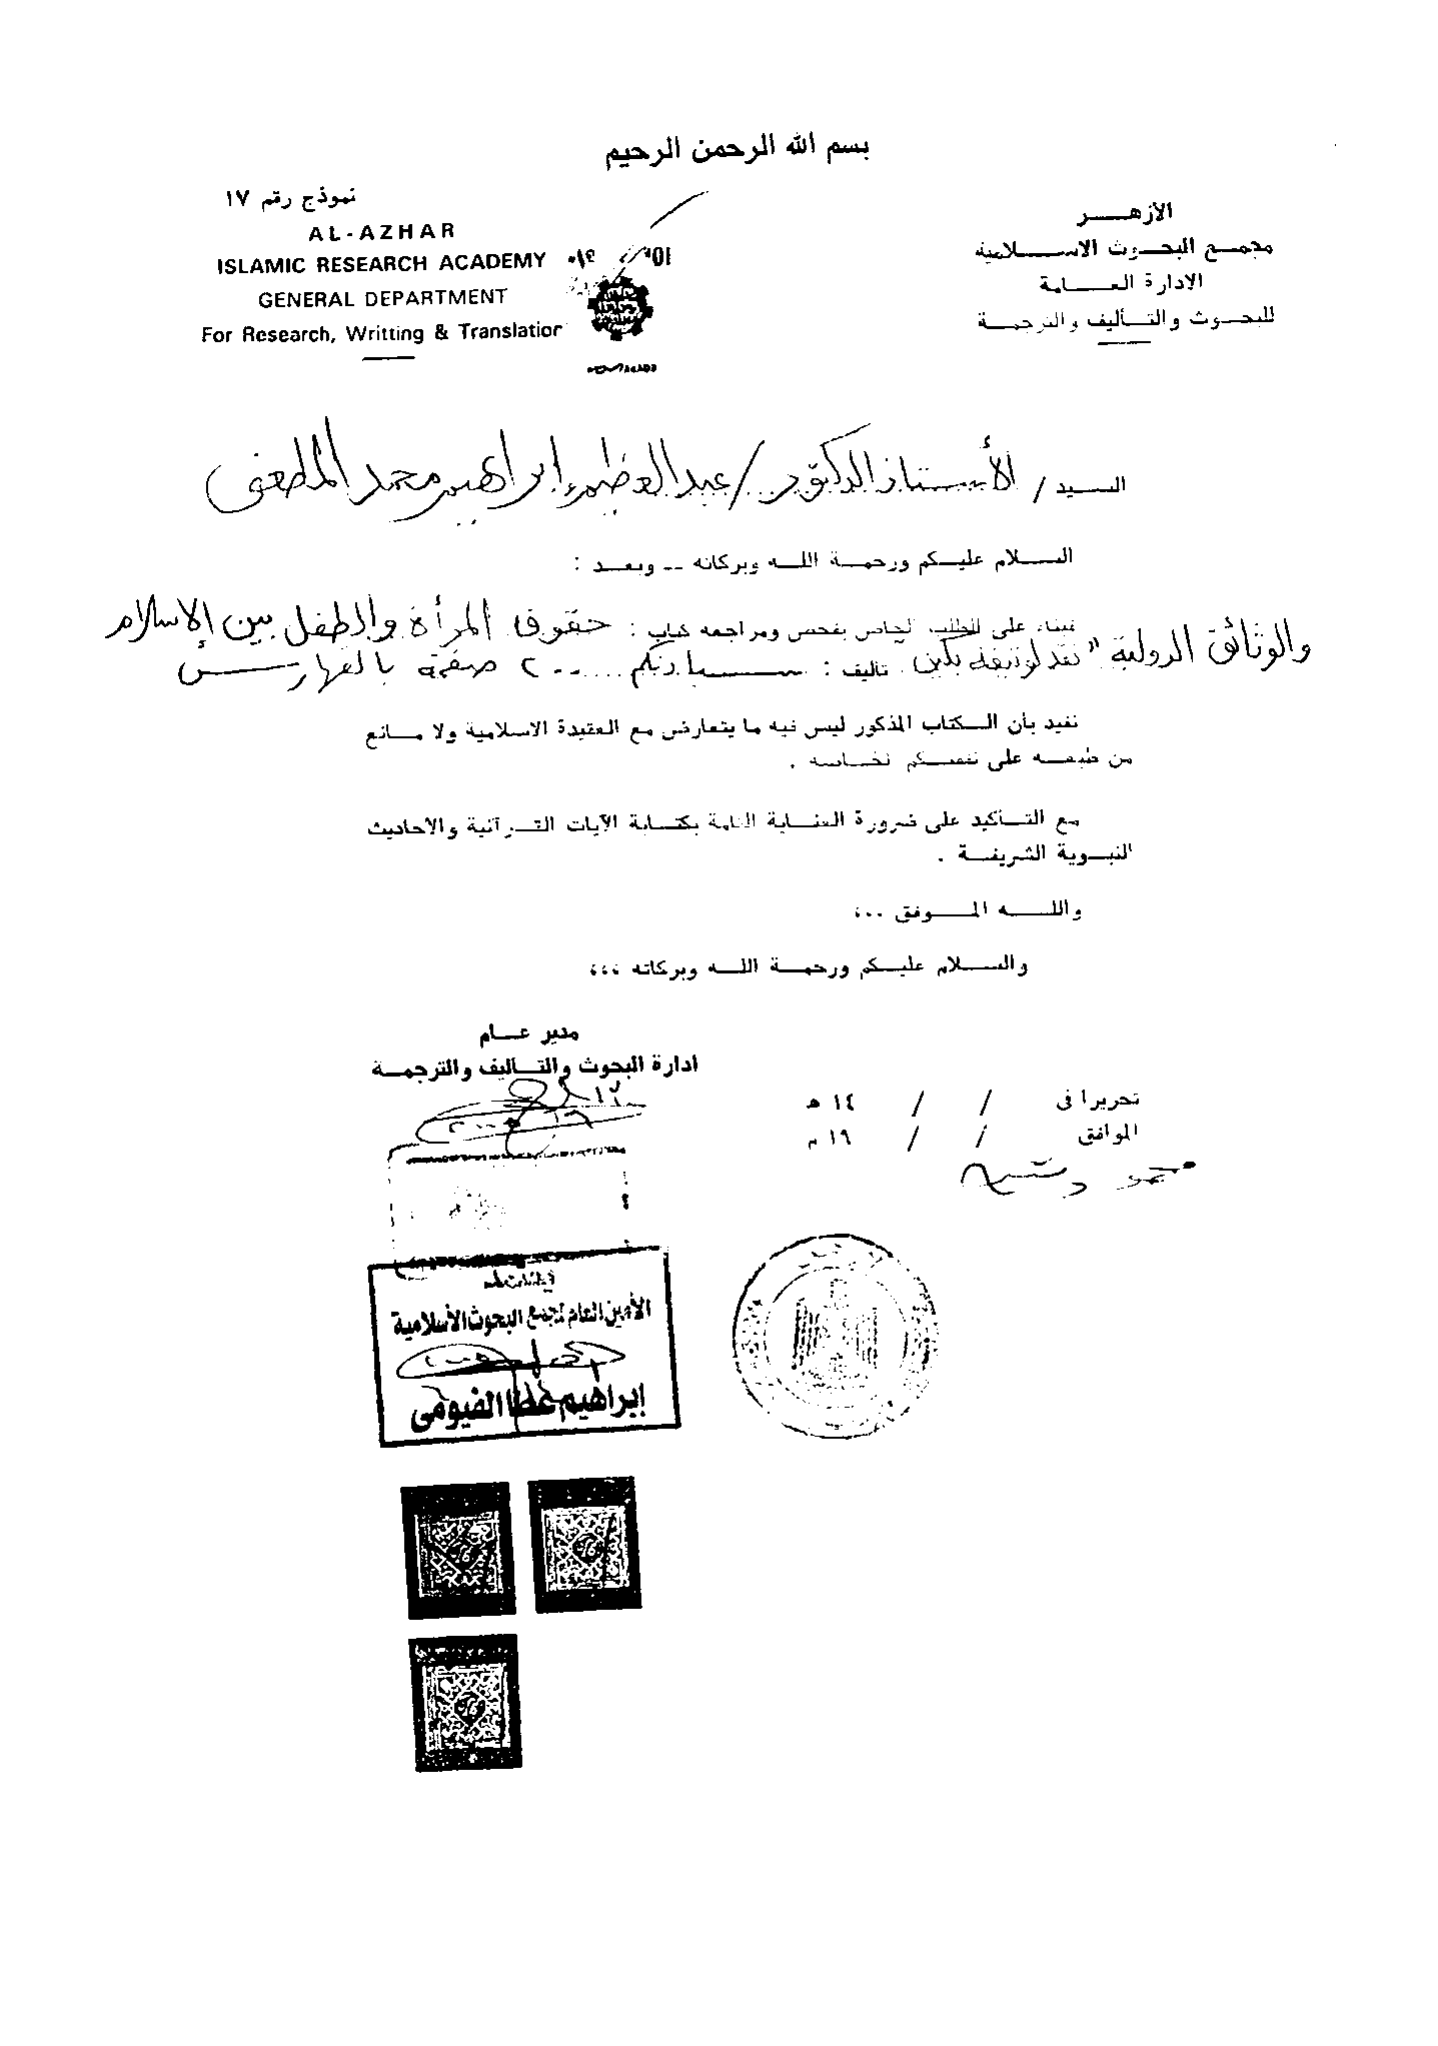 بسم الله الرحمن الرحيم
نموذج رقم ١٧
الأزهـــر
مجمـع البحـوث الاسـلامية
الادارة العـــامة
للبحـوث والتـأليف والترجمـة
AL-AZHAR
ISLAMIC RESEARCH ACADEMY
GENERAL DEPARTMENT
For Research, Writting & Translation
السـيد / الأستاذ الدكتور / عبد العظيم إبراهيم محمد المطعنى
السـلام عليـكم ورحمـة اللـه وبركاته -- وبعـد :
فبناء على الطلب الخاص بفحص ومراجعة كتاب : حقوق المرأة والطفل بين الإسلام
والوثائق الدولية " نقد لوثيقة بكين تأليف : سـيادتكم ..... ٢٠٠ صفحة بالفهارس
نفيد بأن الـكتاب المذكور ليس فيه ما يتعارض مع العقيدة الاسلامية ولا مـانع
من طبعـه على نفقتـكم الخـاصة .
مع التـأكيد على ضرورة العنـاية التامة بكتـابة الآيات القـرآنية والاحاديث
النبـوية الشريفـة .
واللـــه المـــوفق ..،
والسـلام عليـكم ورحمـة اللـه وبركاته ،،،
مدير عـام
ادارة البحوث والتـأليف والترجمـة
تحريرا فى / / ١٤ هـ
الموافق / / ١٩ م
٢٠٠٥
الأمين العام لمجمع البحوث الأسلامية
إبراهيم عطا الفيومى